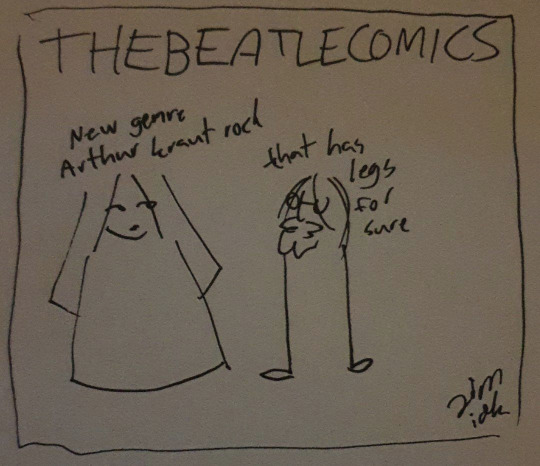 THEBEATLECOMICS
New genre
Arthur kraut rock
that has
legs
for
sure